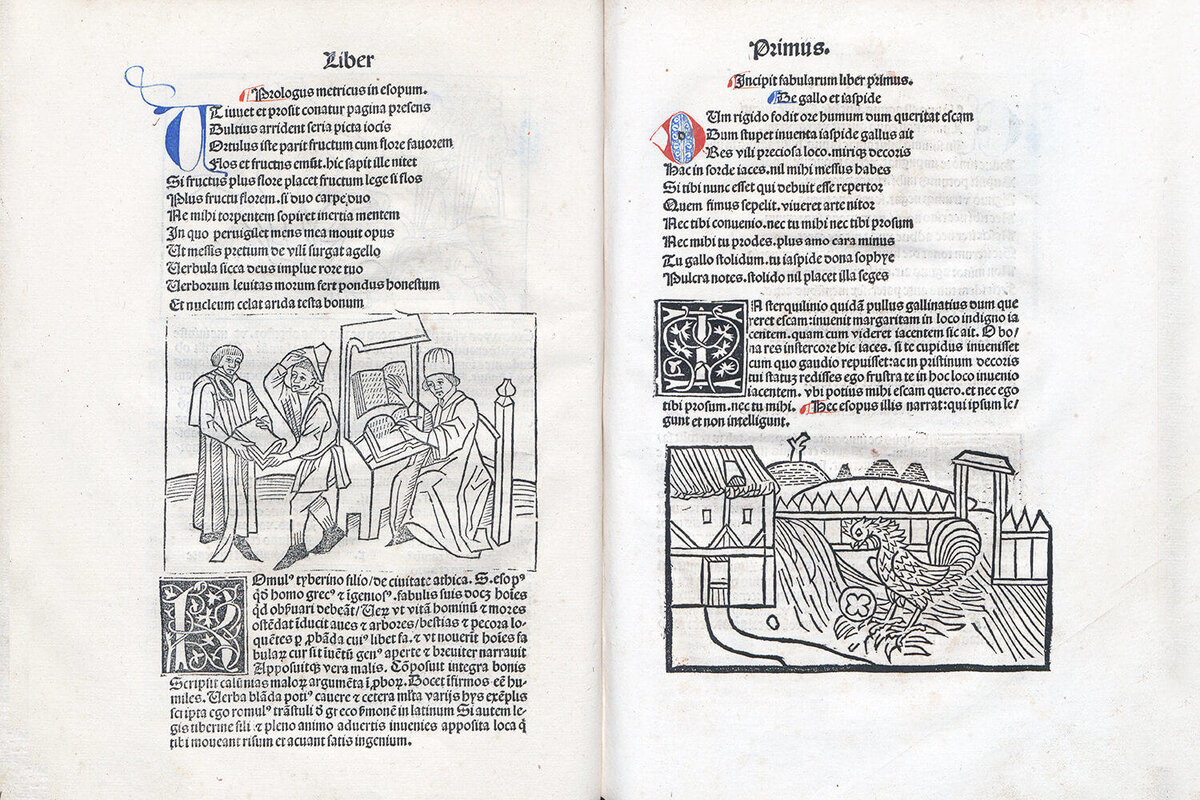 Liber
Prologus metricus in esopum.
UTiuuet et prosit conatur pagina presens
Dultius arrident seria picta iocis
Ortulus iste parit fructum cum flore fauorem
Flos et fructus emūt. hic sapit ille nitet
Si fructus plus flore placet fructum lege si flos
Plus fructu florem. si duo carpe duo
Ne mihi torpentem sopiret inertia mentem
In quo peruigilet mens mea mouit opus
Ut messis pretium de vili surgat agello
Uerbula sicca deus implue rore tuo
Uerborum leuitas morum fert pondus honestum
Et nucleum celat arida testa bonum
ROmulꝰ tyberino filio/de ciuitate athica. S. esopꝰ
qd̄ homo grecꝰ ⁊ īgeniosꝰ. fabulis suis docꝫ hoīes
qd obẜuari debeāt/Ueꝝ vt vitā hominū ⁊ mores
ostēdat īducit aues ⁊ arbores/bestias ⁊ pecora lo-
quētes ꝑ ꝓbāda cuiꝰ libet fa. ⁊ vt nouerit hoīes fa
bulaꝝ cur sit īuētū genꝰ aperte ⁊ breuiter narrauit
Apposuitqꝫ vera malis. Cōposuit integra bonis
Scripsit calūnias maloꝝ argumēta īꝓboꝝ. Docet īfirmos eē hu-
miles. Uerba blāda potiꝰ cauere ⁊ cetera mlta varijs hys exēplis
scripta ego romulꝰ trāstuli d̄ greco ẜmone in latinum Si autem le-
gis tiberine fili ⁊ pleno animo aduertis inuenies apposita loca q̄
tibi moueant risum et acuant satis ingenium.
Primus.
Incipit fabularum liber primus.
De gallo et iaspide
DUm rigido fodit ore humum dum queritat escam
Dum stupet inuenta iaspide gallus ait
Res vili preciosa loco. mirisqꝫ decoris
Hac in sorde iaces. nil mihi messus habes
Si tibi nunc esset qui debuit esse repertor
Quem fimus sepelit. viueret arte nitor
Nec tibi conuenio. nec tu mihi nec tibi prosum
Nec mihi tu prodes. plus amo cara minus
Tu gallo stolidum. tu iaspide dona sophye
Pulcra notes. stolido nil placet illa seges
IN sterquilinio quidā pullus gallinatius dum que
reret escam: inuenit margaritam in loco indigno ia
centem. quam cum videret iacentem sic ait. O bo/
na res instercore hic iaces. si te cupidus inuenisset
cum quo gaudio repuisset: ac in pristinum decoris
tui statuꝫ redisses ego frustra te in hoc loco inuenio
iacentem. vbi potius mihi escam quero. et nec ego
tibi prosum. nec tu mihi. Hec esopus illis narrat: qui ipsum le/
gunt et non intelligunt.